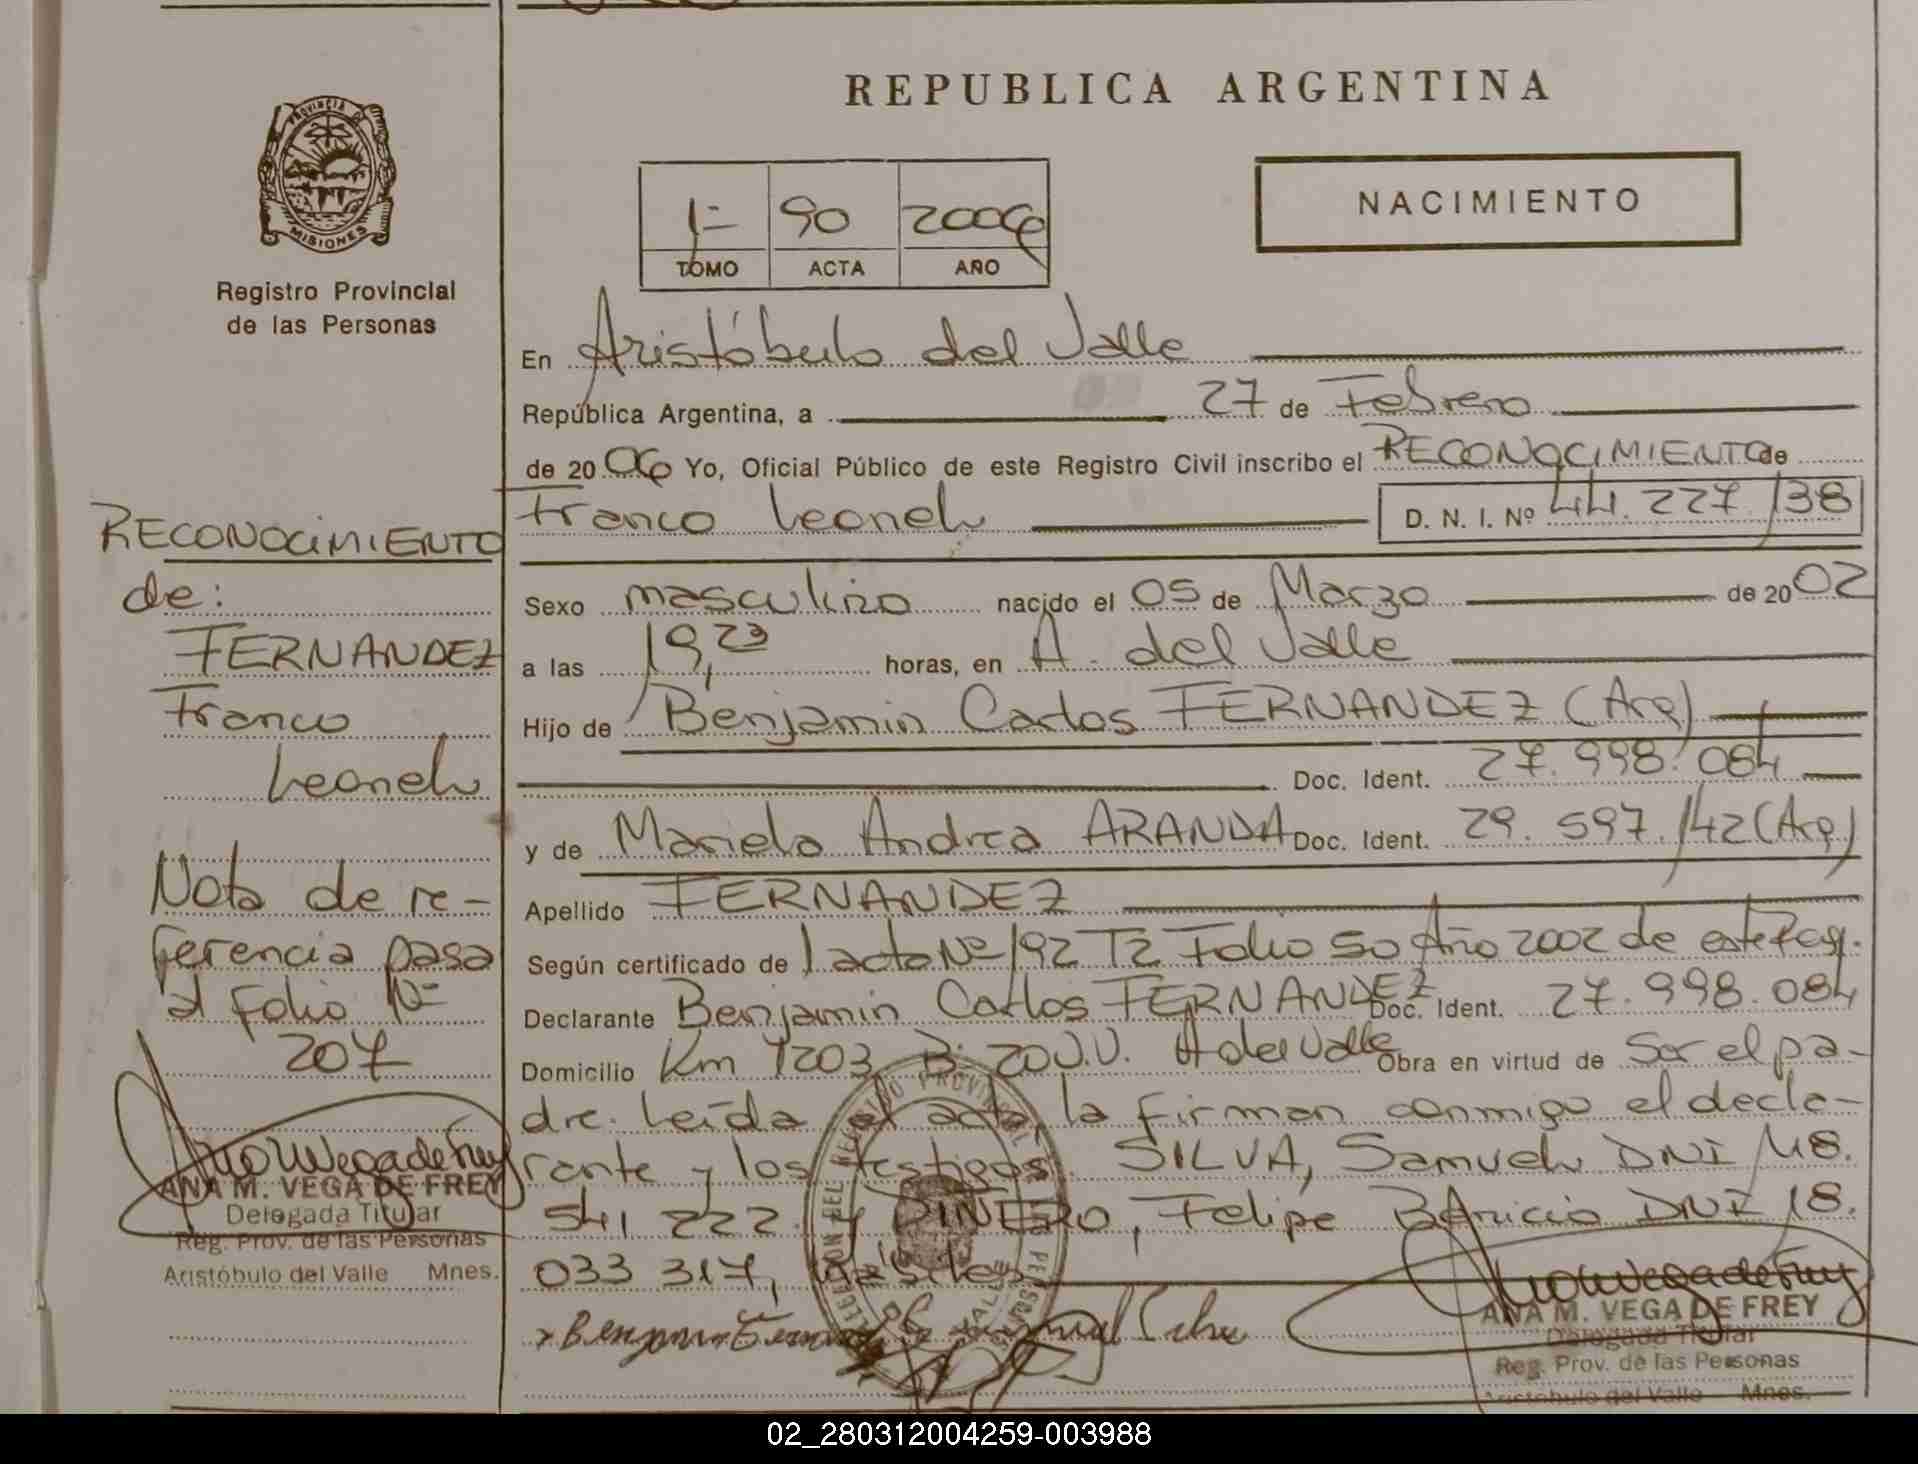 REPUBLICA ARGENTINA
PROVINCIA DE
MISIONES
Registro Provincial
de las Personas
1=
90
2006
TOMO
ACTA
AÑO
NACIMIENTO
En Aristóbulo del Valle
República Argentina, a 27 de Febrero
de 20 06 Yo, Oficial Público de este Registro Civil inscribo el RECONOCIMIENTO de
Franco Leonel D. N. I. Nº 44.227.138
Sexo masculino nacido el 05 de Marzo de 20 02
a las 19,23 horas, en A. del Valle
Hijo de Benjamin Carlos FERNANDEZ (Arg)
Doc. Ident. 27.998.084
y de Mariela Andrea ARANDA Doc. Ident. 29.597.142 (Arg)
Apellido FERNANDEZ
Según certificado de acta Nº 192 T2 Folio 50 Año 2002 de este
Declarante Benjamin Carlos FERNANDEZ Doc. Ident. 27.998.084
Domicilio Km 1203 Bº 20 V.V. A del Valle Obra en virtud de Ser el pa-
dre. Leída el acta, la firman conmigo el decla-
rante y los testigos. SILVA, Samuel DNI M8.
541 222 y PIÑEIRO, Felipe DNI 18.
033 317,
RECONOCIMIENTO
de:
FERNANDEZ
Franco
Leonel
Nota de re-
ferencia pasa
al folio Nº
207
ANA M. VEGA DE FREY
Delegada Titular
Reg. Prov. de las Personas
Aristóbulo del Valle Mnes.
ANA M. VEGA DE FREY
Delegada Titular
Reg. Prov. de las Personas
Aristóbulo del Valle Mnes.
02_280312004259-003988